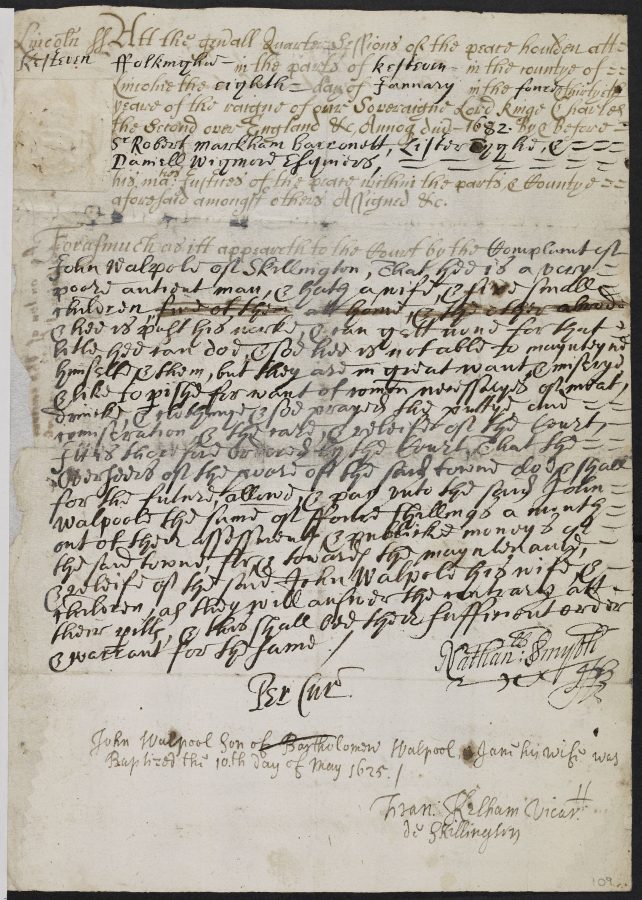 Lincoln ss Att the gen'all Quarter Sessions of the peace houlden att
Kesteven ffolkinghm in the parts of Kesteven in the countye of
Lincolne the eighth day of January in the foure thirtyeth
yeare of the raigne of our Soveraigne Lord Kinge Charles
the Second over England &c Annoq dni 1682. By & before
Sr Robert Markham Barronett, Lister &
Daniell Wigmore Esquiers,
his ma:ties Justices of the peace within the parts & Countye
aforesaid amongst others Assigned &c.
Forasmuch as itt appeareth to the Court by the Complaint of
John Walpole of Skillington, that hee is a very
poore antient man, & hath a wife, & five small
children, five of them att home, & the other abroade
& hee is past his worke, & can gett none for that
litle hee can doe, & soe hee is not able to maynteyne
himselfe & them, but they are in great want & miserye
& like to p'ishe for want of comon necessaryes of meat,
drincke & cloathinge & soe prayes the pittye and
comiseration & the care & releife of the Court,
Itt is therefore ordered by the Court, That the
Overseers of the poore of the said towne doe & shall
for the future allowe, & pay unto the said John
Walpole the sume of ffoure shillings a month
out of their assessments & publicke moneys of
the said towne, for & towards the mayntenance,
& releife of the said John Walpole his wife &
children, as they will answer the contrary att
their p'ills, & this shall bee their sufficient order
& warrant for the same.
Nathan: Smyth
Per Cur
John Walpool Son of Bartholomew Walpool & Jane his wife was
Baptized the 10th day of May 1625.
Fran: Kelham Vicar
de Skillington
109